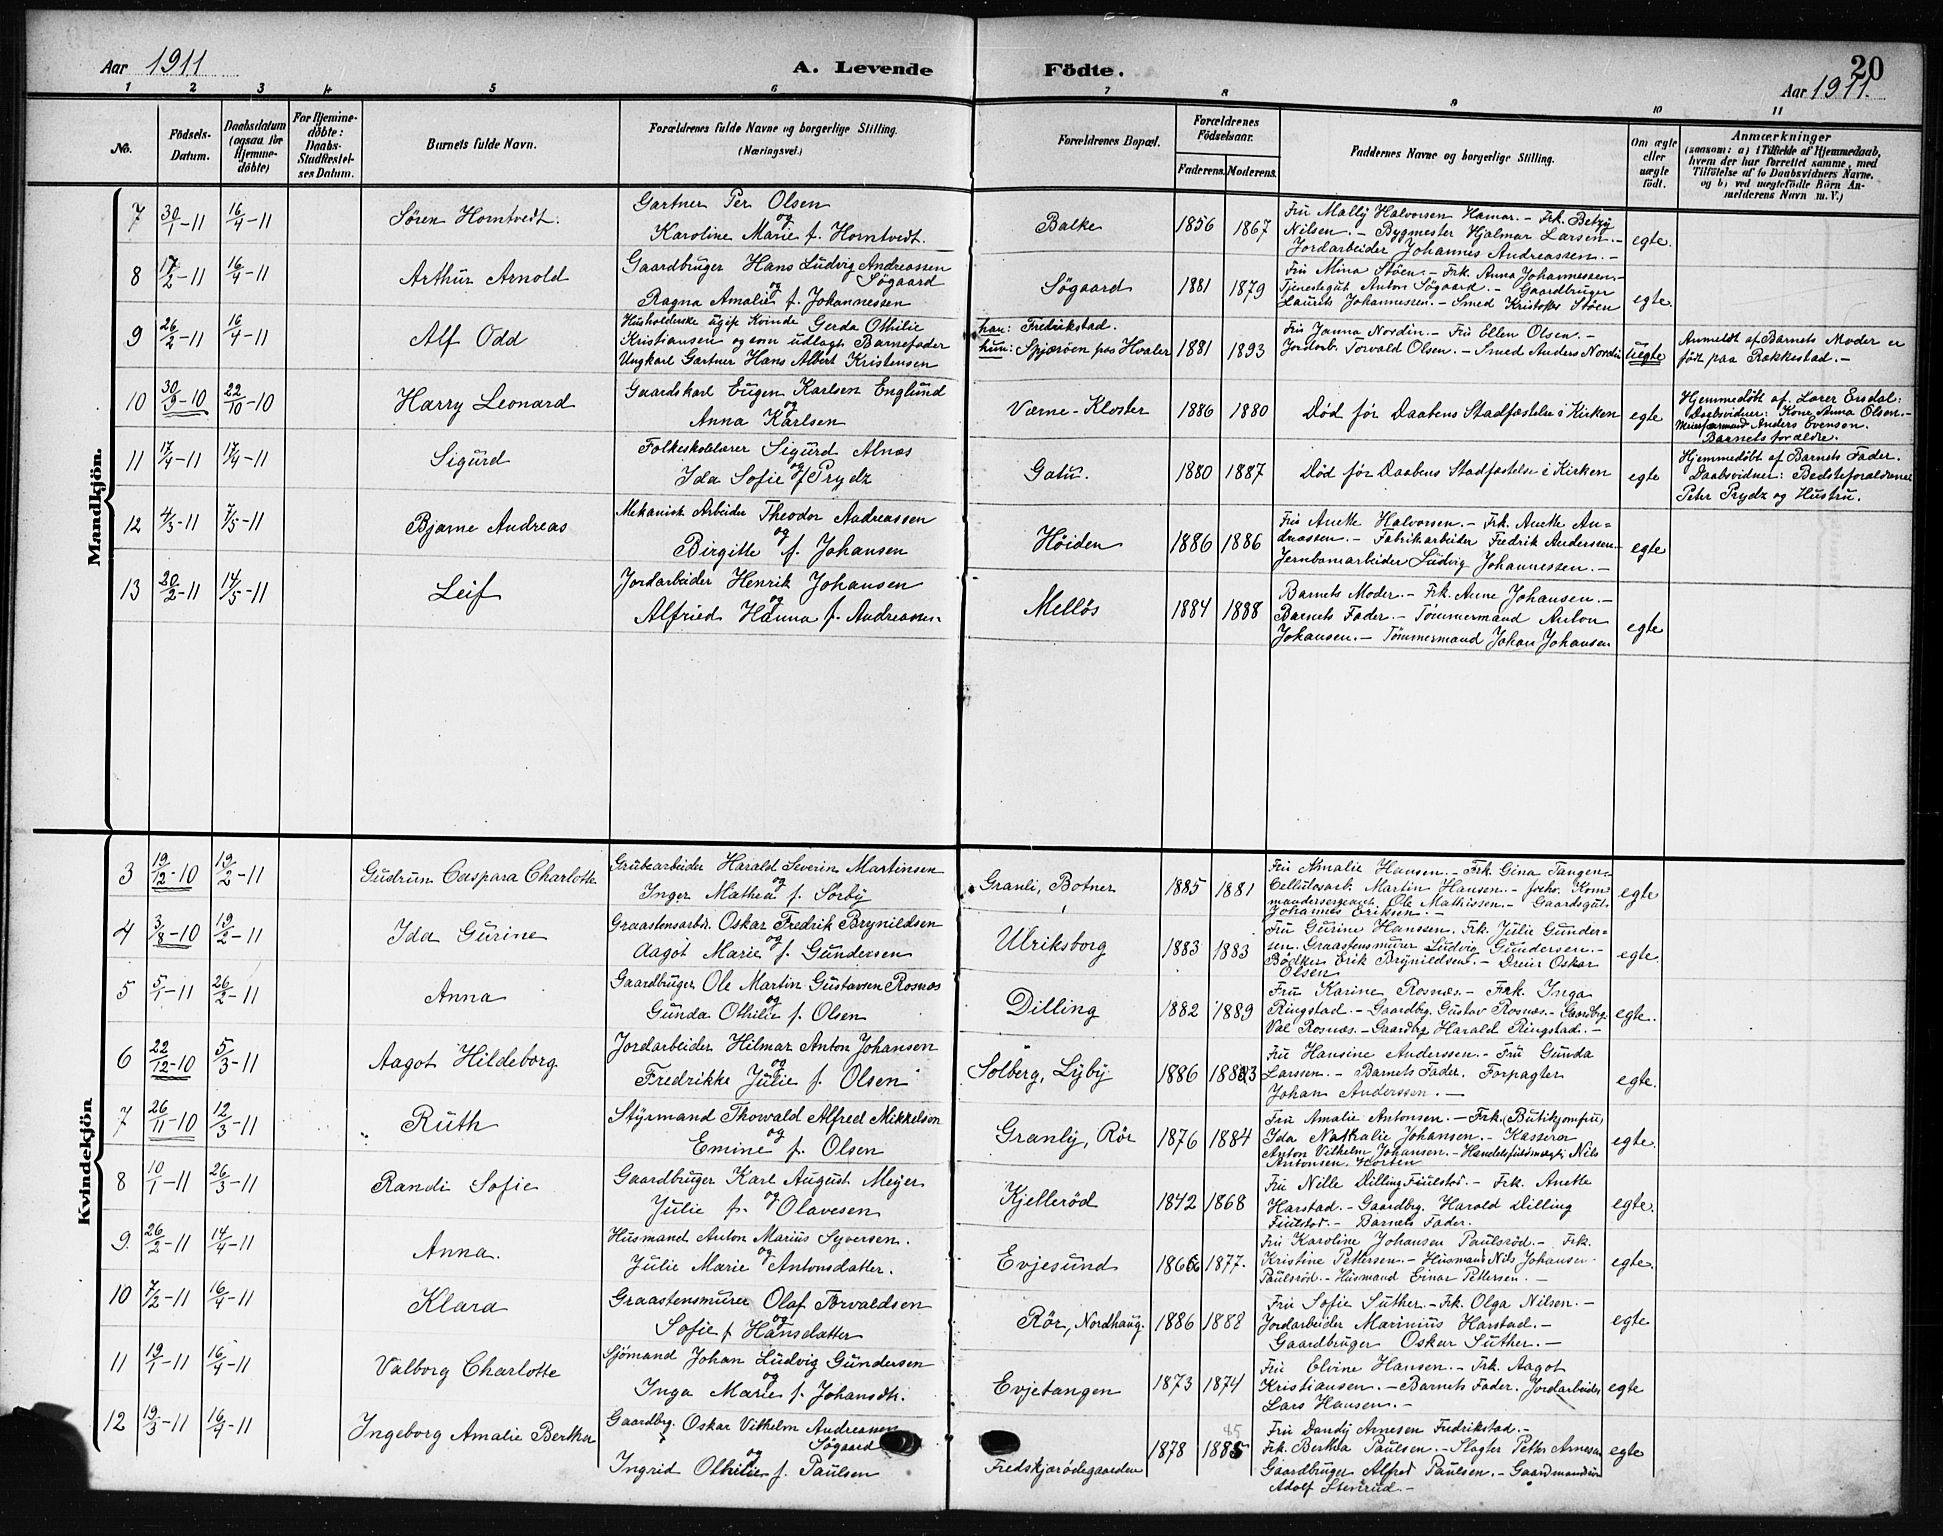 Aar 1911
A. Levende Födte.
20
Aar 1911.
1 2 3 4 5 6 7 8 9 10 11
No.
Födsels-
Datum.
Daabsdatum
(ogsaa for
Hjemme-
döbte)
For Hjemme-
döbte:
Daabs-
Stadfæstel-
ses Datum.
Barnets fulde Navn.
Forældrenes fulde Navne og borgerlige Stilling.
(Næringsvei.)
Forældrenes Bopæl.
Forældrenes
Födselsaar.
Faderens. Moderens.
Faddernes Navne og borgerlige Stilling.
Om ægte
eller
uægte
født.
Anmærkninger
(saasom: a) i Tilfælde af Hjemmedaab,
hvem der har forrettet samme, med
Tilföielse af to Daabsvidners Navne,
og b) ved uægtefödte Börn An-
melderens Navn m. V.)
Mandkjön.
7 30/1-11 16/4-11 Søren Horntvedt.
Gartner Per Olsen
og
Karoline Marie f. Horntvedt.
Balke 1856 1867
Fru Mally Halvorsen Hamar. - Frk. Betzy
Nilsen. - Bygmester Hjalmar Larsen. -
Jordarbeider Johannes Andreassen. -
egte.
8 17/2-11 16/4-11 Arthur Arnold
Gaardbruger Hans Ludvig Andreassen
Søgaard
og
Ragna Amalie f. Johannessen
Søgaard 1881 1879
Fru Mina Støen. - Frk. Anna Johannessen. -
Tjenestegut Anton Søgaard. - Gaardbruger
Laurits Johannessen. - Smed Kristoffer Støen
egte.
9 26/2-11 16/4-11 Alf Odd
Husholderske ugift Kvinde Gerda Othilie
Kristiansen og som udlagt Barnefader
Ungkarl Gartner Hans Albert Kristensen
han: Fredrikstad.
hun: Spjærøen paa Hvaler 1881 1893
Fru Janna Nordin. - Fru Ellen Olsen. -
Jordarb. Torvald Olsen. - Smed Anders Nordin
uegte
Anmeldt af Barnets Moder er
født paa Rakkestad. -
10 30/9-10 22/10-10 Harry Leonard
Gaardskarl Eugen Karlsen Englund
og
Anna Karlsen
Værne-Kloster 1886 1880
Død før Daabens Stadfæstelse i Kirken
egte
Hjemmedøbt af Lærer Ensdal:
Daabsvidner: Kone Anna Olsen. -
Anders Evensen.
Barnets forældre.
11 17/4-11 17/4-11 Sigurd
Folkeskolelærer Sigurd Alnæs
og
Ida Sofie f Prydz
Gatu. 1880 1887
Død før Daabens Stadfæstelse i Kirken
egte
Hjemmedøbt af Barnets Fader.
Daabsvidner: Bedsteforældrene
Petr Prydz og Hustru.
12 4/3-11 7/5-11 Bjarne Andreas
Mekanisk Arbeider Theodor Andreassen
og
Birgitte f. Johansen
Høiden 1886 1886
Fru Anette Halvorsen. - Frk. Anette An-
dreassen. - Fabrikarbeider Fredrik Anderssen. -
Jernbanearbeider Ludvig Johannessen. -
egte
13 20/2-11 14/5-11 Leif
Jordarbeider Henrik Johansen
og
Alfried Hanna f. Andreassen
Melløs 1884 1888
Barnets Moder. - Frk. Anne Johansen. -
Barnets Fader. - Tømmermand Anton
Johansen. - Tømmermand Johan Johansen
egte
Kvindekjön
3 19/12-10 19/2-11 Gudrun Caspara Charlotte
Grubearbeider Harald Severin Martinsen
og
Inger Mathea f. Sørby
Granli, Botner 1885 1881
Fru Amalie Hansen. - Frk. Gina Tangen. -
Cellulosarb. Martin Hansen. - forhv. Kom-
mandersergeant Ole Mathissen. - Gaardsgut
Johannes Eriksen. -
egte
4 3/8-10 19/2-11 Ida Gurine
Graastensarb. Oskar Fredrik Brynildsen
og
Aagot Marie f. Gundersen
Ulriksborg 1883 1883
Fru Gurine Hanssen. Frk. Julie Gunder-
sen. Graastensmurer Ludvig Gundersen. -
Bødker Erik Brynildsen. - Dreier Oskar
Olsen
egte.
5 5/1-11 26/2-11 Anna
Gaardbruger Ole Martin Gustavsen Rosnæs
og
Gunda Othilie f. Olsen
Dilling 1882 1889
Fru Karine Rosnæs. - Frk. Inga
Ringstad. - Gaardbg. Gustav Rosnæs. - Gaardbg.
Val Rosnæs. - Gaardbg Harald Ringstad. -
egte.
6 22/12-10 5/3-11 Aagot Hildeborg
Jordarbeider Hilmar Anton Johansen
og
Fredrikke Julie f. Olsen
Solberg, Lyby 1886 1883
Fru Hansine Anderssen. - Fru Gunda
Larssen. - Barnets Fader. Forpagter
Johan Anderssen. -
egte.
7 26/11-10 12/3-11 Ruth
Styrmand Thorvald Alfred Mikkelsen
og
Emine f. Olsen
Granly, Rör 1876 1884
Fru Amalie Antonsen. - Frk. (Butikjomfru)
Ida Nathalie Johansen. - Kasserer
Anton Vilhelm Johansen. - Handelsfuldmægt. Nils
Antonsen, Horten
egte.
8 10/1-11 26/3-11 Randi Sofie
Gaardbruger Karl August Meyer
og
Julie f. Olavesen
Kjellerød 1842 1868
Fru Nille Dilling Fiulstod. - Frk. Anette
Harstad. - Gaardbrg. Harald Dilling
Fiulstod. - Barnets Fader.
egte.
9. 26/2-11 14/4-11 Anna.
Husmand Anton Marius Syversen.
og
Julie Marie Antonsdatter.
Evjesund 1866 1877.
Fru Karoline Johansen Paulsrød. - Frk.
Kristine Pettersen. - Husmand Nils Johansen
Paulsrød. - Husmand Einar Pettersen. -
egte.
10 7/2-11 16/4-11 Klara
Graastensmurer Olaf Torvaldsen
og
Sofie f Hansdatter
Rör, Nordhaug. 1886 1888
Fru Sofie Suther. - Frk. Olga Nilsen. -
Jordarbeider Marinius Harstad. -
Gaardbruger Oskar Suther. -
egte
11 19/1-11 16/4-11 Valborg Charlotte
Sjømand Johan Ludvig Gundersen
og
Inga Marie f. Johansdtr.
Evjetangen 1873 1874
Fru Elvine Hansen. - Frk. Aagot
Kristiansen. - Barnets Fader. Jordarbeider
Lars Hansen. -
egte
12 19/3-11 16/4-11 Ingeborg Amalie Berthea
Gaardbrg. Oskar Vilhelm Andreassen
Søgaard
og
Ingrid Othilie f. Paulsen
Fredskjærødegaarden 1878 1885
85
Fru Dandy Arnesen Fredrikstad. -
Frk. Berthea Paulsen. - Slagter Petter Arnesen
Gaardbruger Alfred Paulsen. - Gaardmandsøn
Adolf Stenrud. -
egte